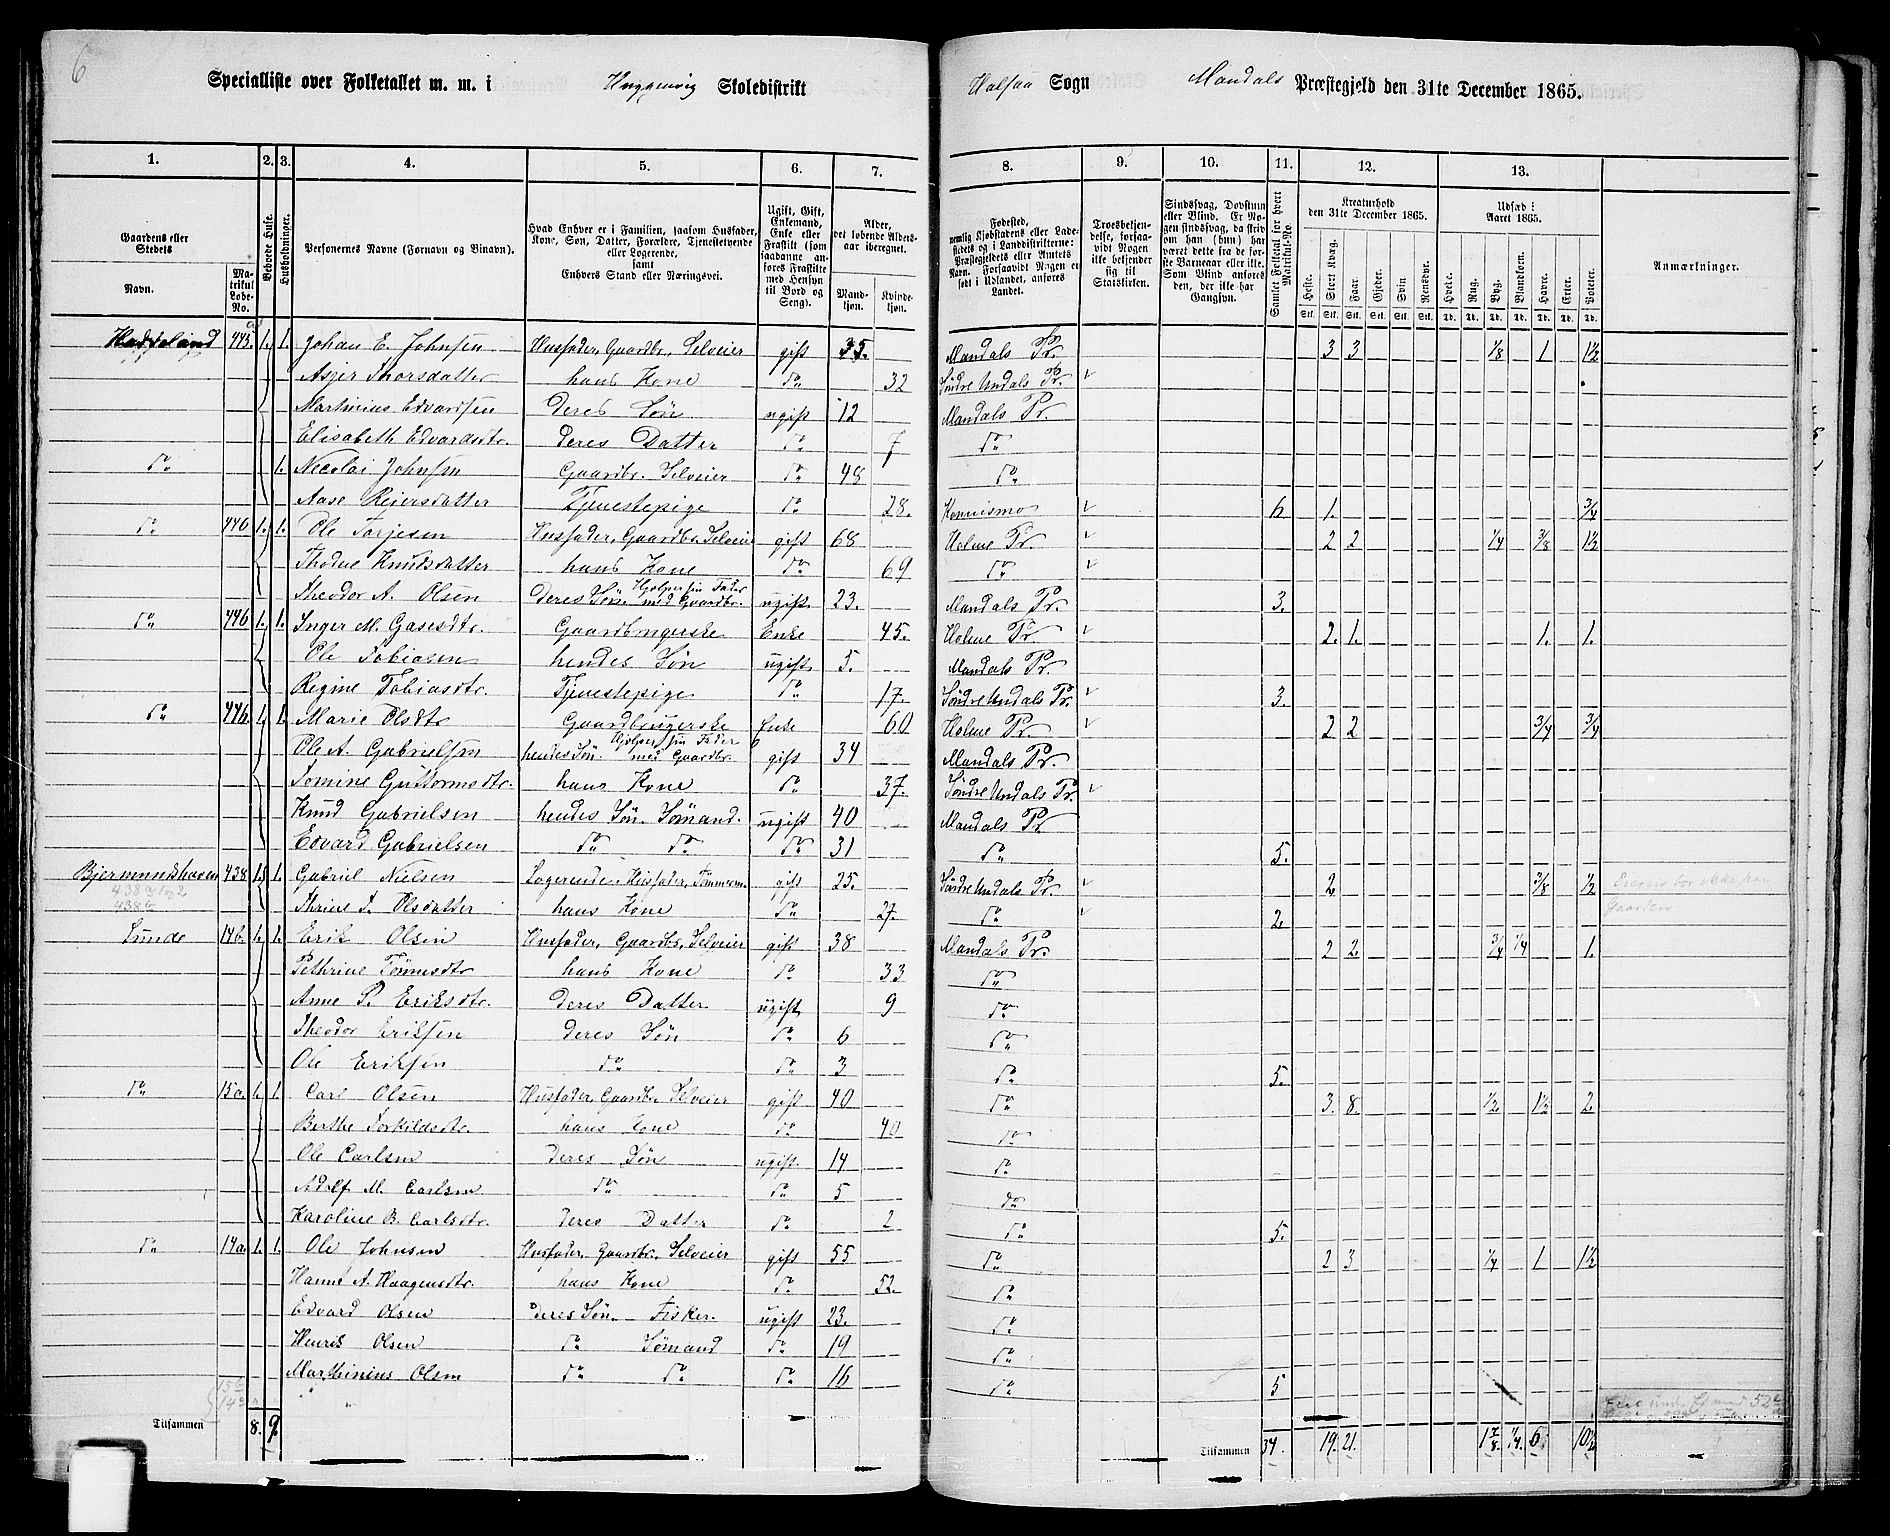 6
Specialliste over Folketallet m. m. i Huggenvig Skoledistrikt Halsaa Sogn Mandals Præstegjeld den 31te December 1865.
1. 2. 3. 4. 5. 6. 7. 8. 9. 10. 11. 12. 13.
Gaardens eller Stedets Navn. Matrikul Løbe-No. Beboede Huse. Husholdninger. Personernes Navne (Fornavn og Binavn). Hvad Enhver er i Familien, saasom Husfader, Kone, Søn, Datter, Forældre, Tjenestetyende eller Logerende, samt Enhvers Stand eller Næringsvei. Ugift, Gift, Enkemand, Enke eller Fraskilt (som saadanne anføres Fraskilte med Hensyn til Bord og Seng). Alder, det løbende Alders-aar iberegnet. Mandkjøn. Kvindekjøn.
Fødested, nemlig Kjøbstadens eller Ladestedets og i Landdistrikterne: Præstegjeldets eller Amtets Navn. Forsaavidt Nogen er født i Udlandet, anføres Landet. Troesbekjendelse, forsaavidt Nogen ikke bekjender sig til Statskirken. Sindssvag, Døvstum eller Blind. Er Nogen sindssvag, da skriv om han (hun) har været dette fra de første Barneaar eller ikke. Som Blind anføres den, der ikke har Gangsyn. Samlet Folketal for hvert Matrikul-No. Kreaturhold den 31te December 1865. Udsæd i Aaret 1865. Anmærkninger.
Heste. Stort Kvæg. Faar. Gjeder. Svin. Rensdyr. Hvede. Rug. Byg. Blandkorn. Havre. Erter. Poteter.
Hadseland 443 1. 1. Johan E. Johnsen Husfader, Gaardbr, Selveier gift 35. Mandals Pr. 3 3 1/8 1 1½
Asjer Thorsdatter hans Kone do 32 Søndre Undals Pr.
Martinius Edvardsen Deres Søn ugift 12 Mandals Pr.
Elisabeth Edvardsdtr. Deres Datter do 7 do
do 1. Nicolai Johnsen Gaardbr. Selveier do 48 do
Aase Reiersdatter Tjenestepige do 28. 6 1. 3/4
do 446 1. 1. Ole Torjesen Husfader, Gaardbr. Selveier gift 68 Holme Pr. 2 2 1/4 3/8 1½
Thodne Knutsdatter hans Kone do 69 do
Theodor A. Olsen Deres Søn. Hjelper sin Fader med Gaardbr. ugift 23. Mandals Pr. 3.
do 446 1. 1. Inger M. Gasesdtr. Gaardbrugerske Enke 45. Holme Pr. 2. 1. 1. 1.
Ole Tobiasen hendes Søn ugift 5. Mandals Pr.
Regine Tobiasdtr. Tjenestepige do 17. Søndre Undals Pr. 3.
do 446 1. 1. Marie Olsdtr Gaardbrugerske Enke 60 Holme Pr. 2 2 3/4 3/4
Ole A. Gabrielsen hendes Søn. Hjelper sin Fader med Gaardbr. gift 34 Mandals Pr.
Tomine Guttormsdtr. hans Kone do 37. Søndre Undals Pr.
Knud Gabrielsen hendes Søn. Sømand. ugift 40 Mandals Pr.
Edvard Gabrielsen do do do 31 do 5.
Bjermundshavn 438 1. 1. Gabriel Nielsen Logerende, Husfader, gift 25. Søndre Undals Pr. 2 3/8 1/2
Thrine T. Olsdatter hans Kone do 27. do 2.
Lunde 14b. 1. 1. Erik Olsen Husfader, Gaardbr, Selveier gift 38 Mandals Pr. 2 2 3/4 1/4 1.
Pethrine Tønnesdtr hans Kone do 33 do
Anne P. Eriksdtr. Deres Datter ugift 9 do
Theodor Eriksen Deres Søn do 6 do
Ole Eriksen do do 3 do 5.
do 15a. 1. 1. Carl Olsen Husfader, Gaardbr, Selveier gift 40 do 3. 8. 1/2 1½ 2.
Berthe Torkildsdtr. hans Kone do 40 do
Ole Carlsen Deres Søn ugift 14 do
Adolf M. Carlsen do do 5 do
Karoline B. Carlsdtr. Deres Datter do 2 do 5.
do 14a. 1. 1. Ole Johnsen Husfader, Gaardbr. Selveier gift 55 do 2 3 1/4 1 1½
Hanne A. Haagensdtr. hans Kone do 52. do
Edvard Olsen Deres Søn. Fisker. ugift 23. do
Henrik Olsen do Sømand do 19 do
Marthinius Olsen do do do 16 do 5
Tilsammen 8. 9. Tilsammen 34. 19. 21. 1 7/8. 1/4. 6. 10½